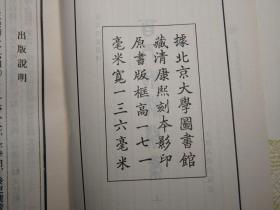 據北京大學圖書館
藏清康熙刻本影印
原書版框高一七一
毫米寬一三六毫米
出版說明